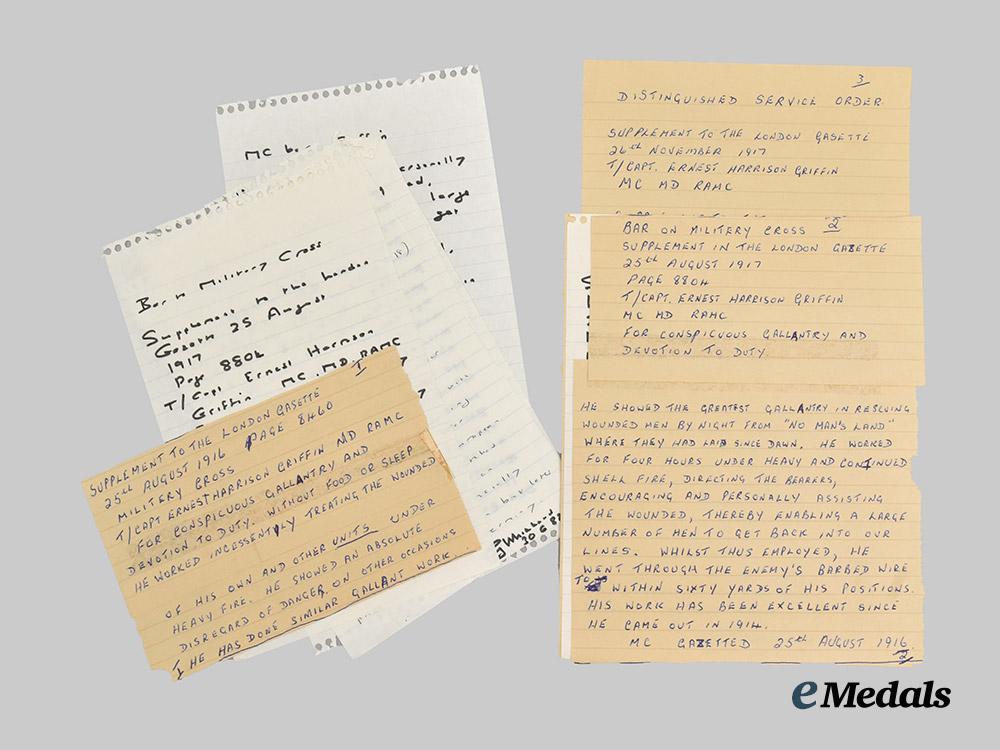 MC
ersonally
large
Bar to Military Cross
Supplement to the London
Gazette 25 August
1917
Page 8804
T/Capt Ernest Harrison
Griffin MC. MD. RAMC
I
SUPPLEMENT TO THE LONDON GASETTE
25th AUGUST 1916 PAGE 8460
MILITERY CROSS
T/CAPT ERNEST HARRISON GRIFFIN MD RAMC
FOR CONSPICUOUS GALLANTRY AND
DEVOTION TO DUTY. WITHOUT FOOD OR SLEEP
HE WORKED INCESSENTLY TREATING THE WOUNDED
OF HIS OWN AND OTHER UNITS UNDER
HEAVY FIRE. HE SHOWED AN ABSOLUTE
DISREGARD OF DANGER, ON OTHER OCCASIONS
HE HAS DONE SIMILAR GALLANT WORK.
3
DISTINGUISHED SERVICE ORDER.
SUPPLEMENT TO THE LONDON GASETTE
26th NOVEMBER 1917
T/CAPT. ERNEST HARRISON GRIFFIN
MC MD RAMC
BAR ON MILITERY CROSS "2"
SUPPLEMENT IN THE LONDON GAZETTE
25th AUGUST 1917
PAGE 8804
T/CAPT. ERNEST HARRISON GRIFFIN
MC MD RAMC
FOR CONSPICUOUS GALLANTRY AND
DEVOTION TO DUTY.
HE SHOWED THE GREATEST GALLANTRY IN RESCUING
WOUNDED MEN BY NIGHT FROM "NO MAN'S LAND"
WHERE THEY HAD LAID SINCE DAWN. HE WORKED
FOR FOUR HOURS UNDER HEAVY AND CONTINUED
SHELL FIRE, DIRECTING THE BEARERS,
ENCOURAGING AND PERSONALLY ASSISTING
THE WOUNDED, THEREBY ENABLING A LARGE
NUMBER OF MEN TO GET BACK INTO OUR
LINES. WHILST THUS EMPLOYED, HE
WENT THROUGH THE ENEMY'S BARBED WIRE
TO WITHIN SIXTY YARDS OF HIS POSITIONS.
HIS WORK HAS BEEN EXCELLENT SINCE
HE CAME OUT IN 1914.
MC GAZETTED 25th AUGUST 1916
2
eMedals